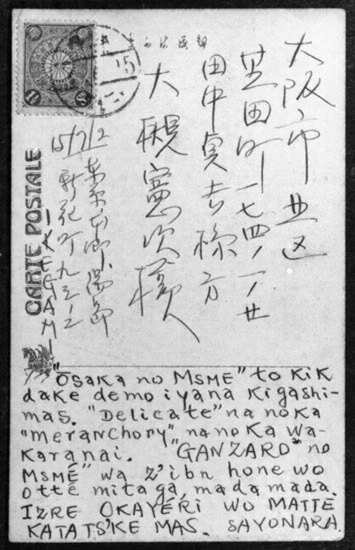 大阪市北区
田中
大槻憲次様
東京本郷湯島
新花町九三
15/7/2
IKEGAMI
CARTE POSTALE
"OSAKA no MSMĒ" to kik
dake demo iyana kigashi-
mas. "Delicate" na no ka
"meranchory" na no ka wa-
karanai. "GANZARO" no
MSMĒ" wa z'ibn hone wo
otte mita ga, mada mada.
IZRE OKAYĒRI WO MATTE
KATATS'KE MAS. SAYONARA.